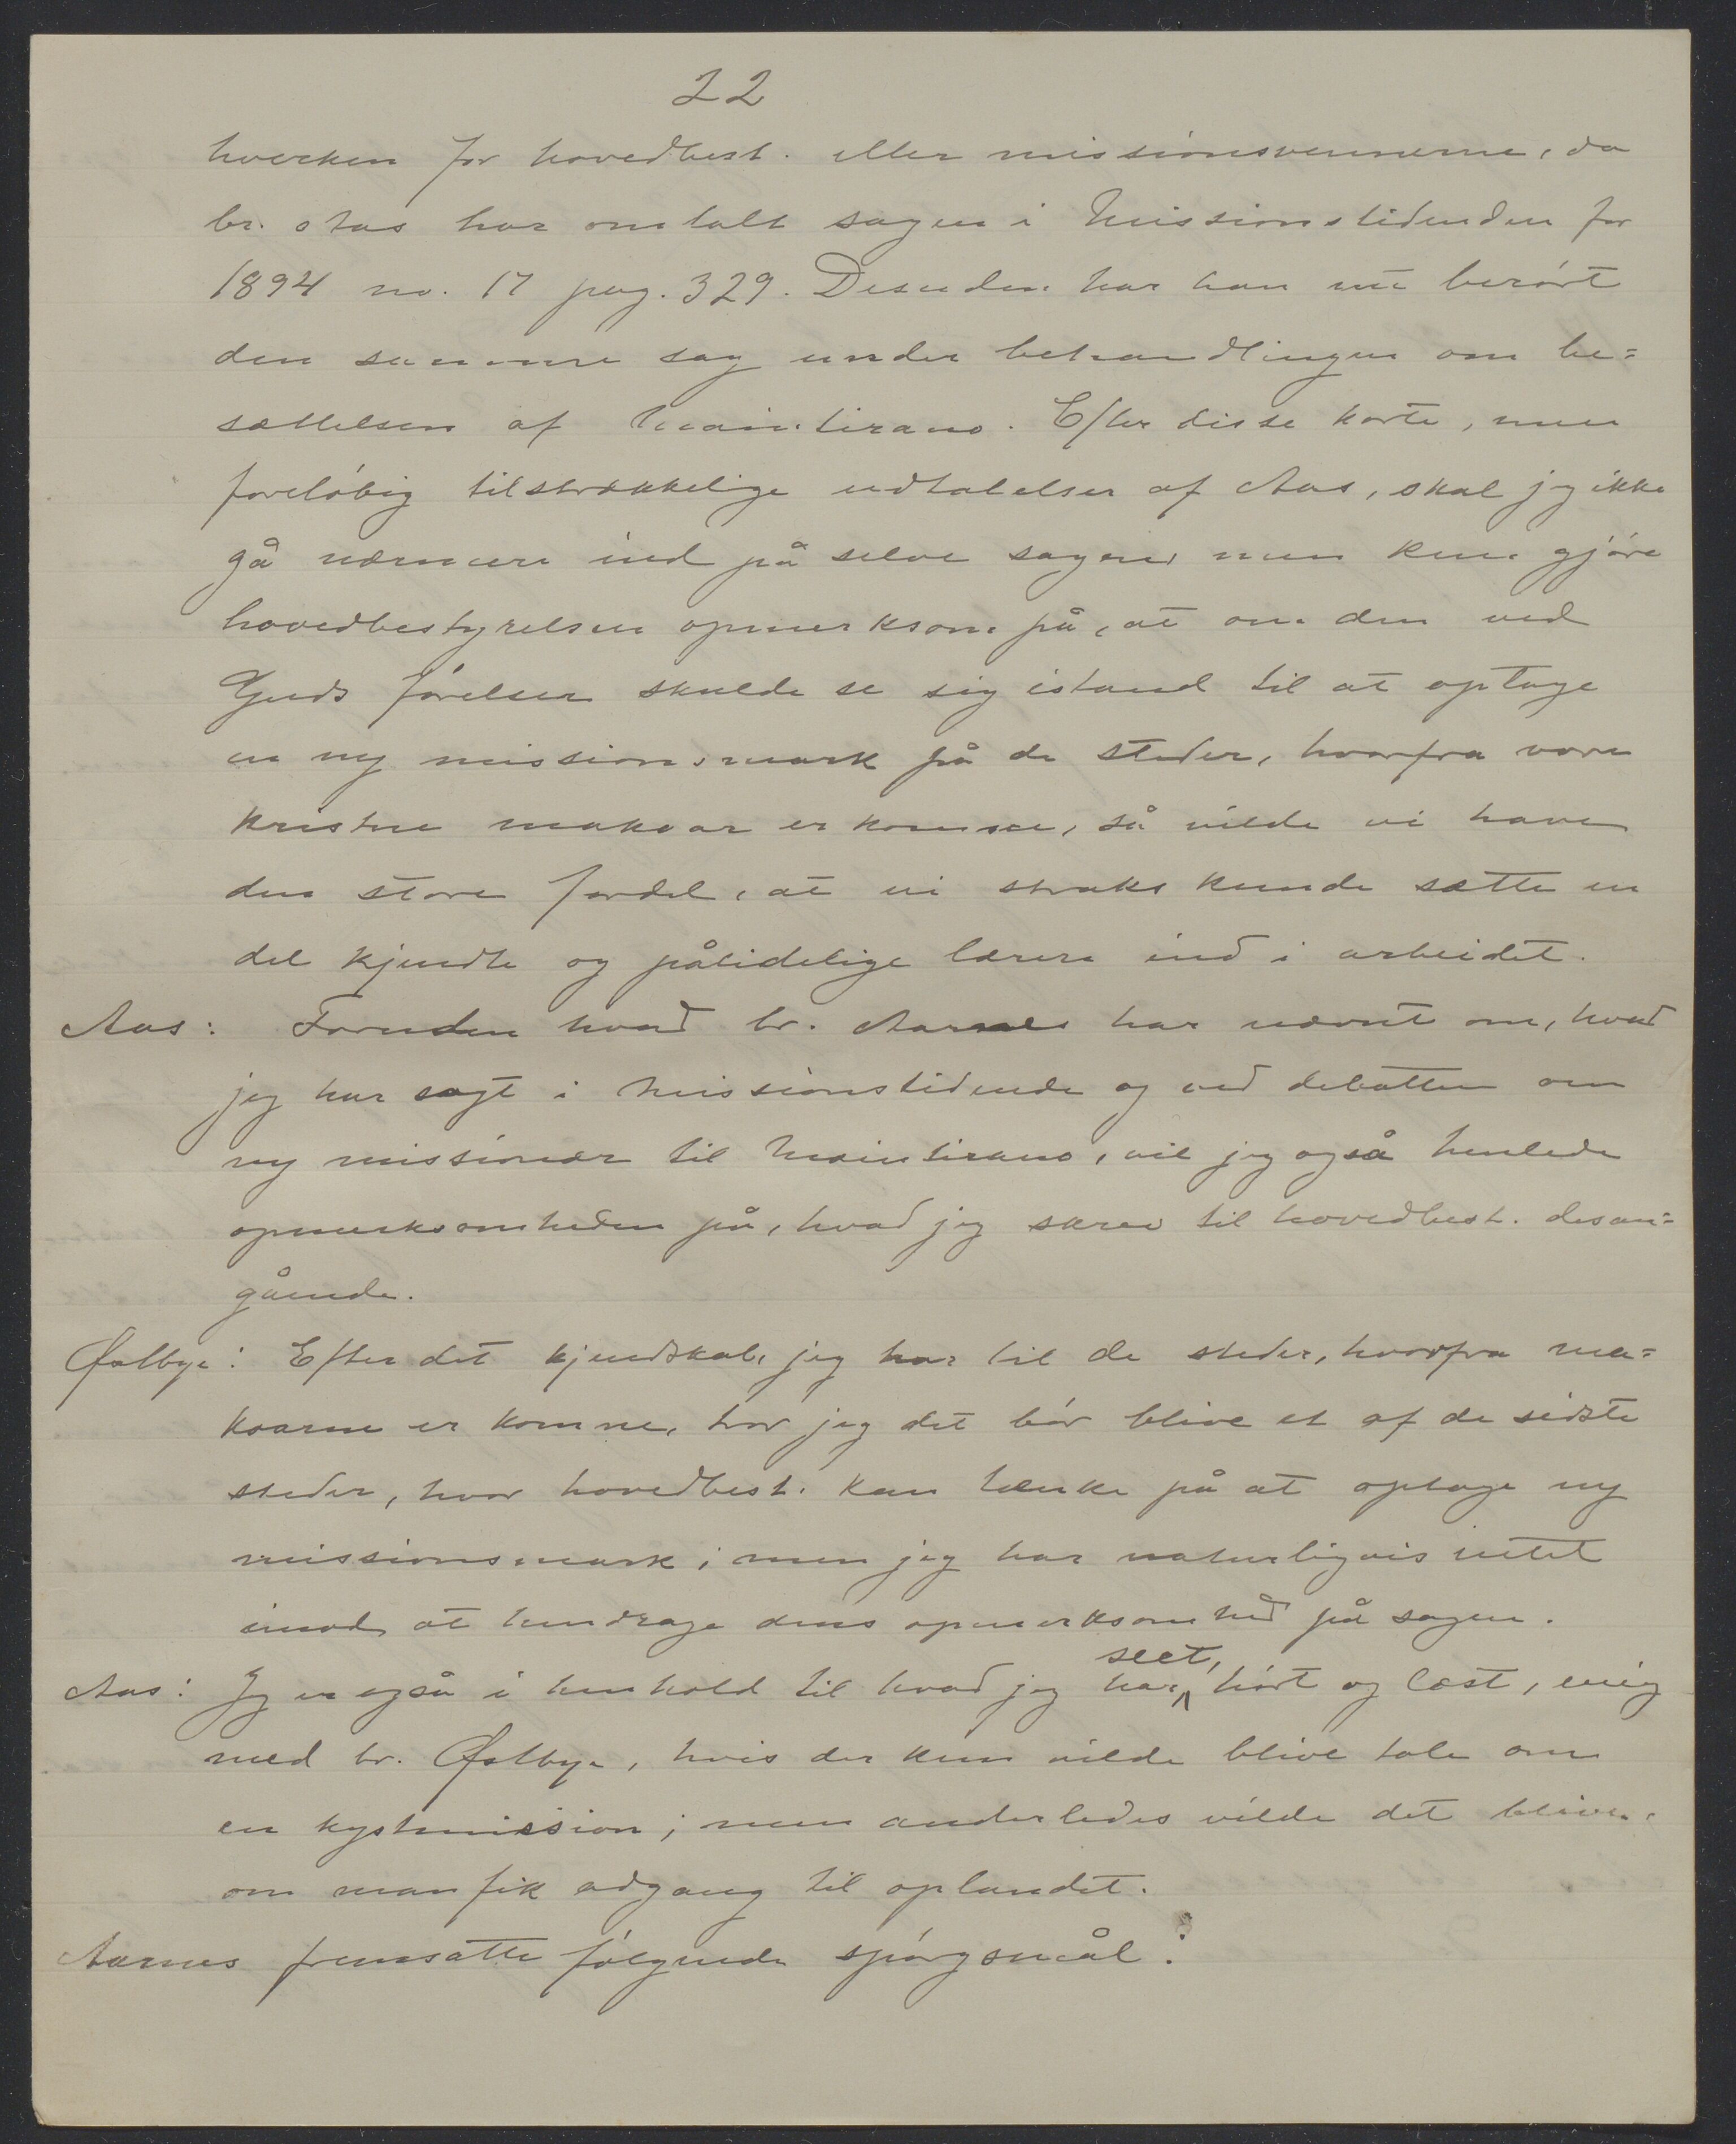 22
hverken for hovedbest. eller missionsvennerne, da
br. Aas har omtalt sagen i Missionstidenden for
1894 no. 17 pag. 329. Desuden har han nu berørt
den samme sag under behandlingen om be=
sættelsen af Maintirano. Efter disse korte, men
foreløbig tilstrækkelige udtalelser af Aas, skal jeg ikke
gå nærmere ind på selve sagen, men kun gjøre
hovedbestyrelsen opmerksom på, at om den ved
Guds førelser skulde se sig istand til at optage
en ny missionsmark på de steder, hvorfra vore
kristne makoar er komne, så vilde vi have
den store fordel, at vi straks kunde sætte en
del kjendte og pålidelige lærere ind i arbeidet.
Aas: Foruden hvad br. Aarnes har nævnt om, hvad
jeg har sagt i Missionstidende og ved debatten om
ny missionær til Maintirano, vil jeg også henlede
opmerksomheden på, hvad jeg skrev til hovedbest. desan=
gående.
Østbye: Efter det kjendskab, jeg har til de steder, hvorfra ma=
koarne er komne, tror jeg det bør blive et af de sidste
steder, hvor hovedbest. kan tænke på at optage ny
missionsmark; men jeg har naturligvis intet
imod at hendrage dens opmerksomhed på sagen.
Aas: Jeg er også i henhold til hvad jeg har seet, hørt og læst, enig
med br. Østbye, hvis der kun vilde blive tale om
en kystmission; men anderledes vilde det blive,
om man fik adgang til oplandet.
Aarnes fremsatte følgende spørgsmål: